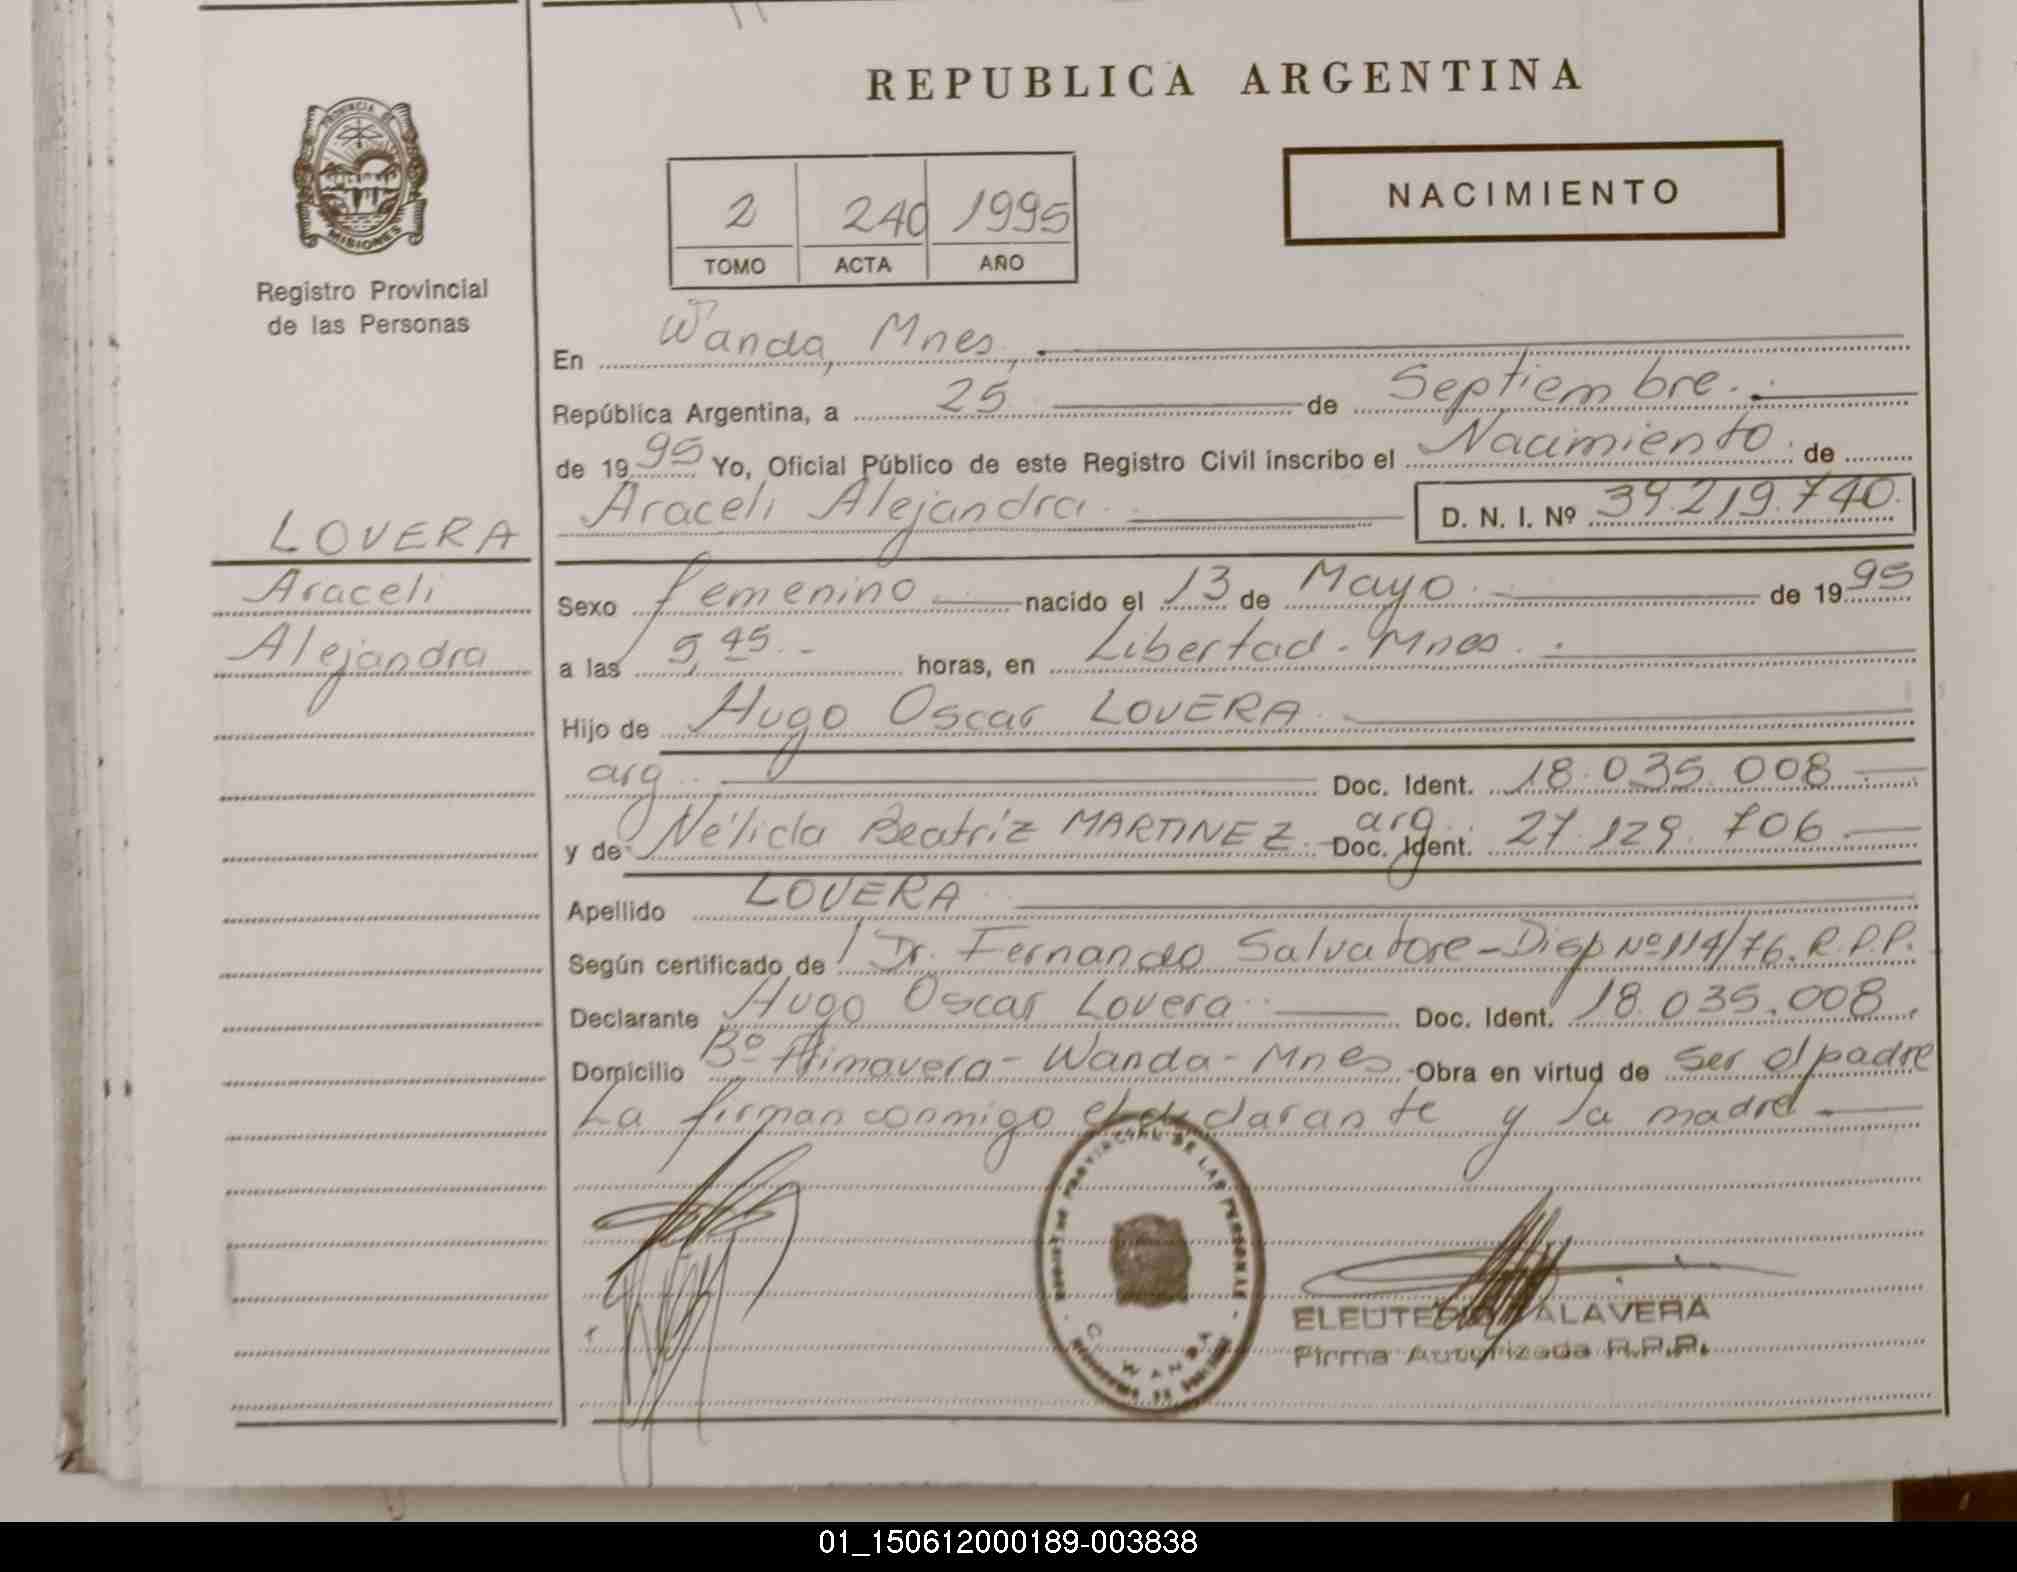 REPUBLICA ARGENTINA
PROVINCIA DE
MISIONES
Registro Provincial
de las Personas
NACIMIENTO
2 240 1995
TOMO ACTA AÑO
En Wanda, Mnes,
República Argentina, a 25 de Septiembre.
de 1995 Yo, Oficial Público de este Registro Civil inscribo el Nacimiento de
LOVERA
Araceli Alejandra D. N. I. Nº 39.219.740.
Araceli
Sexo femenino nacido el 13 de Mayo de 1995
Alejandra
a las 5,45.- horas, en Libertad - Mnes.
Hijo de Hugo Oscar LOVERA
arg. Doc. Ident. 18.035.008
y de Nélida Beatriz MARTINEZ. arg. Doc. Ident. 27.129.706
Apellido LOVERA
Según certificado de Dr. Fernando Salvatore - Disp Nº 114/76. R.P.P.
Declarante Hugo Oscar Lovera Doc. Ident. 18.035.008
Domicilio Bº Primavera - Wanda - Mnes Obra en virtud de ser el padre
La firman conmigo el declarante y la madre
PROVINCIAL DE LAS PERSONAS
WANDA
ELEUTERIO TALAVERA
Firma Autorizada R.P.P.
01_150612000189-003838